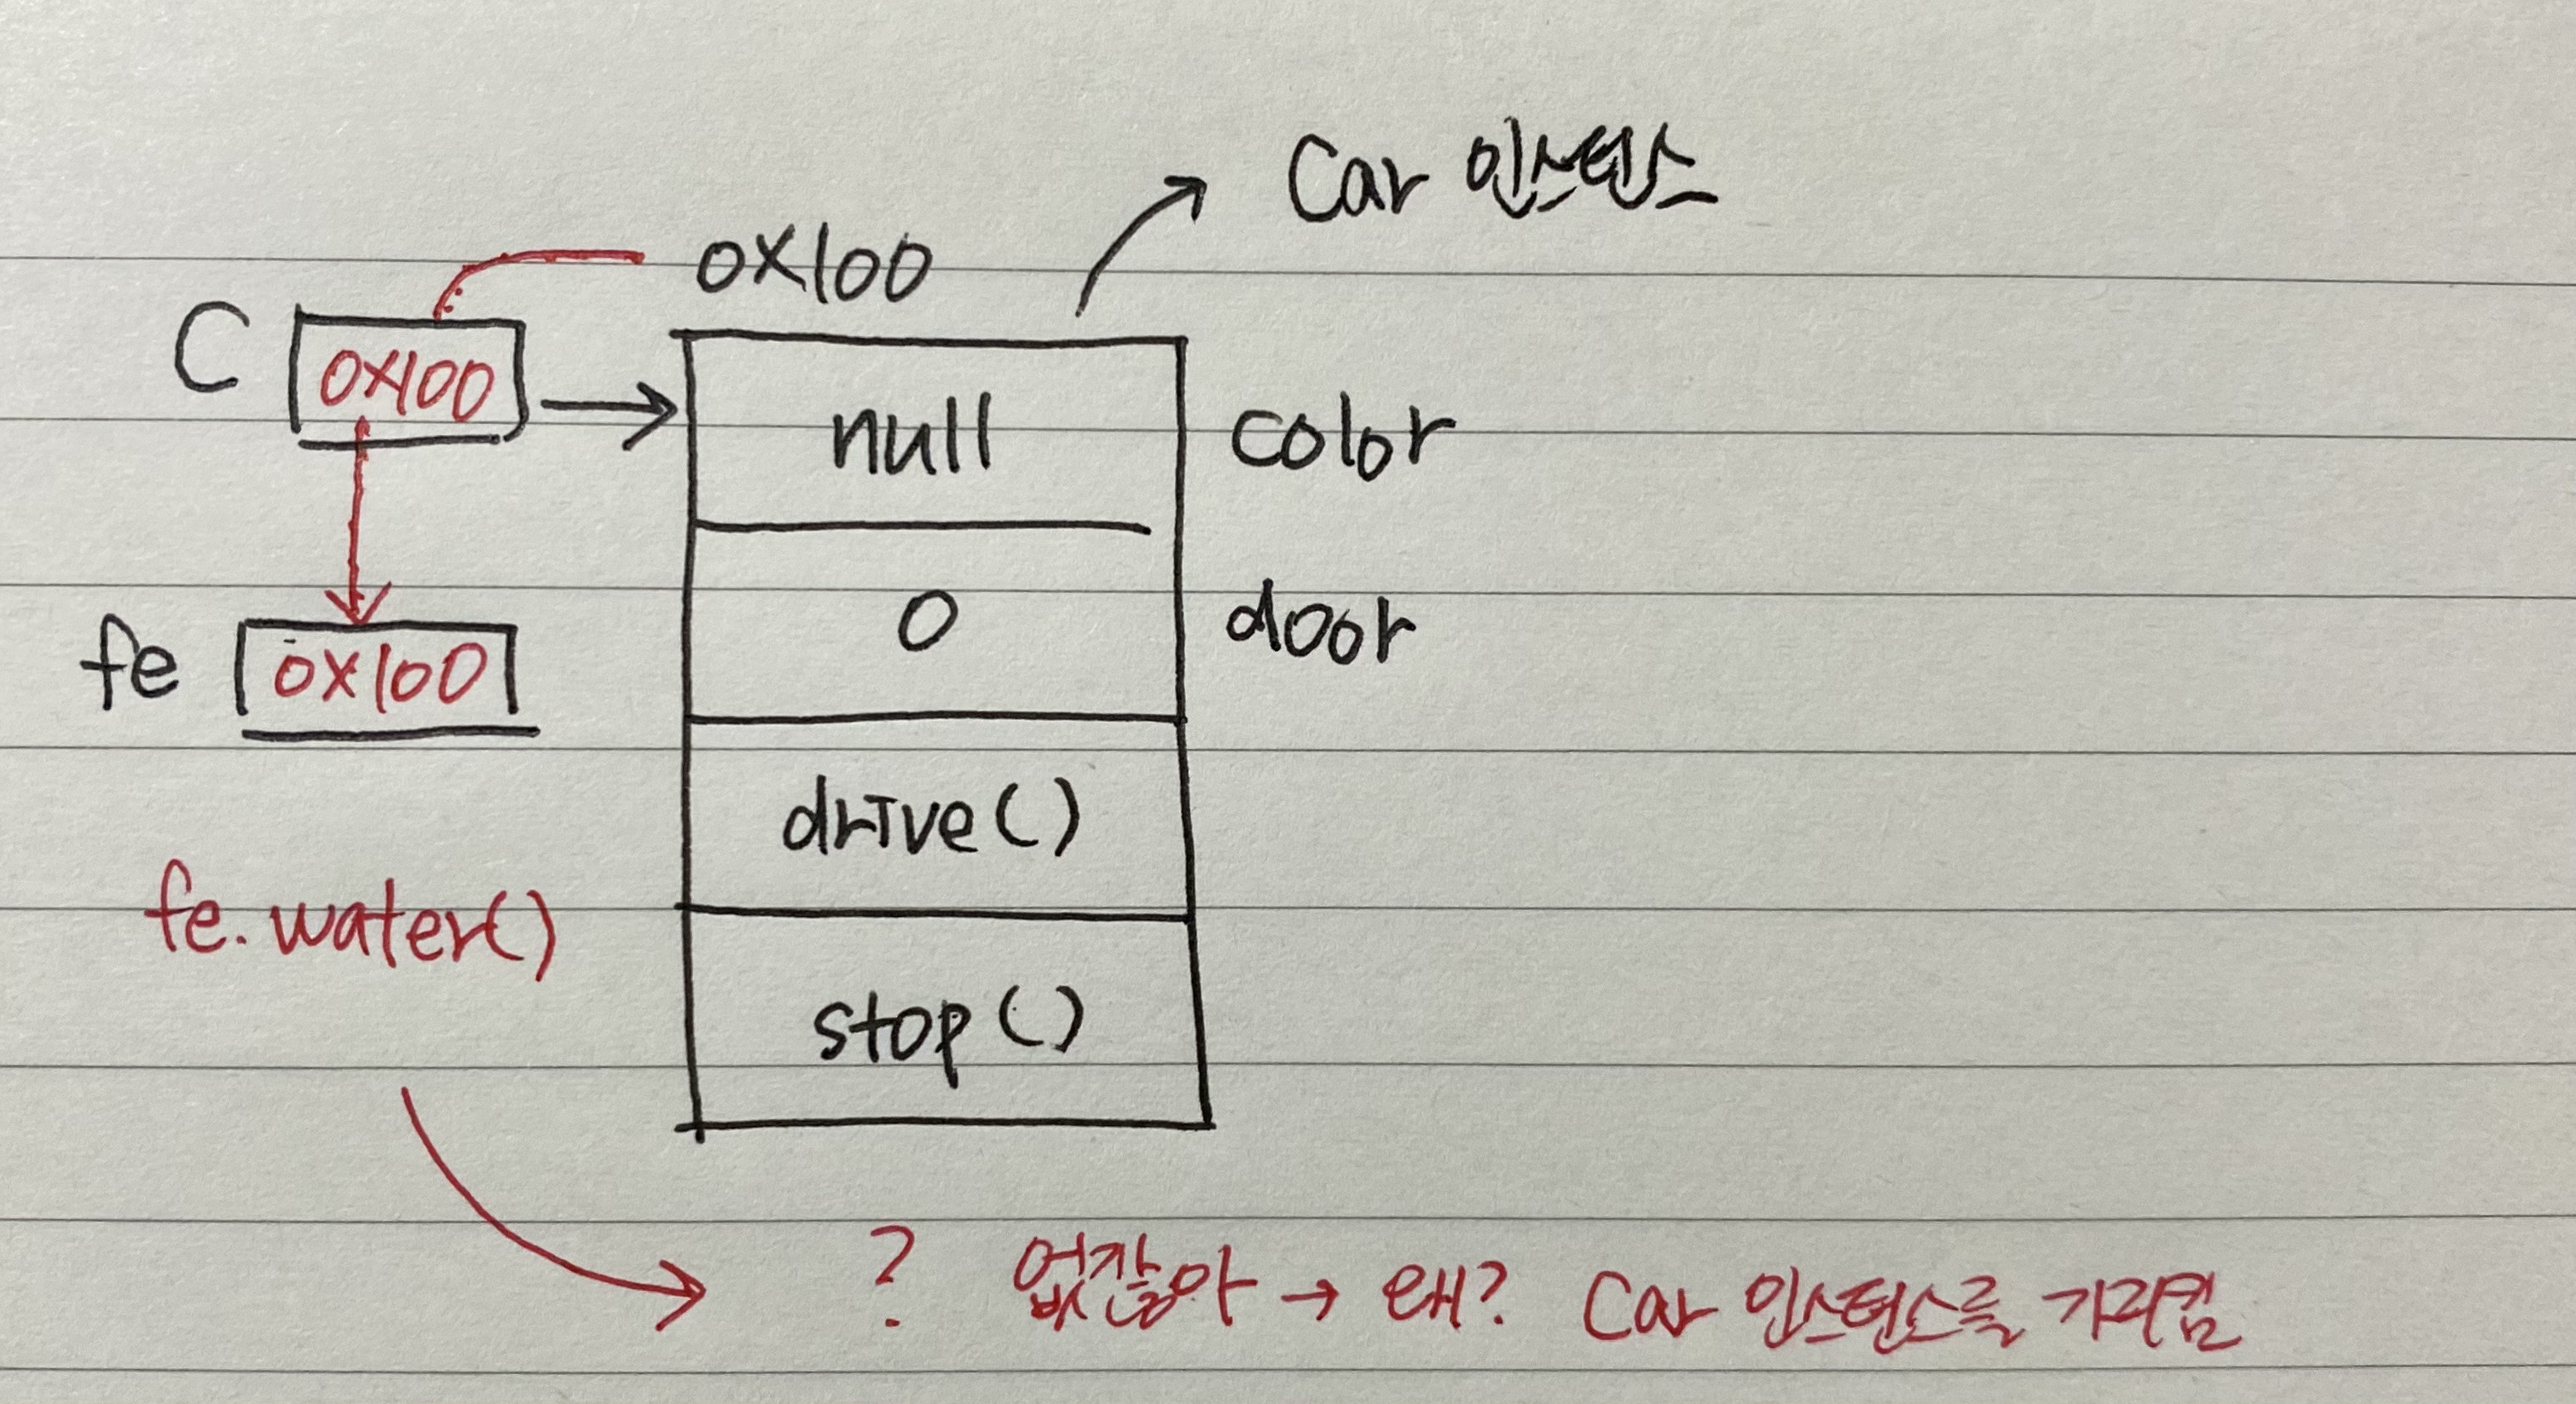 Car 인스턴스
0X100
C 0X100
null color
0 door
fe 0X100
drive()
fe.water()
stop()
? 없잖아 → 왜? Car 인스턴스를 가리킴